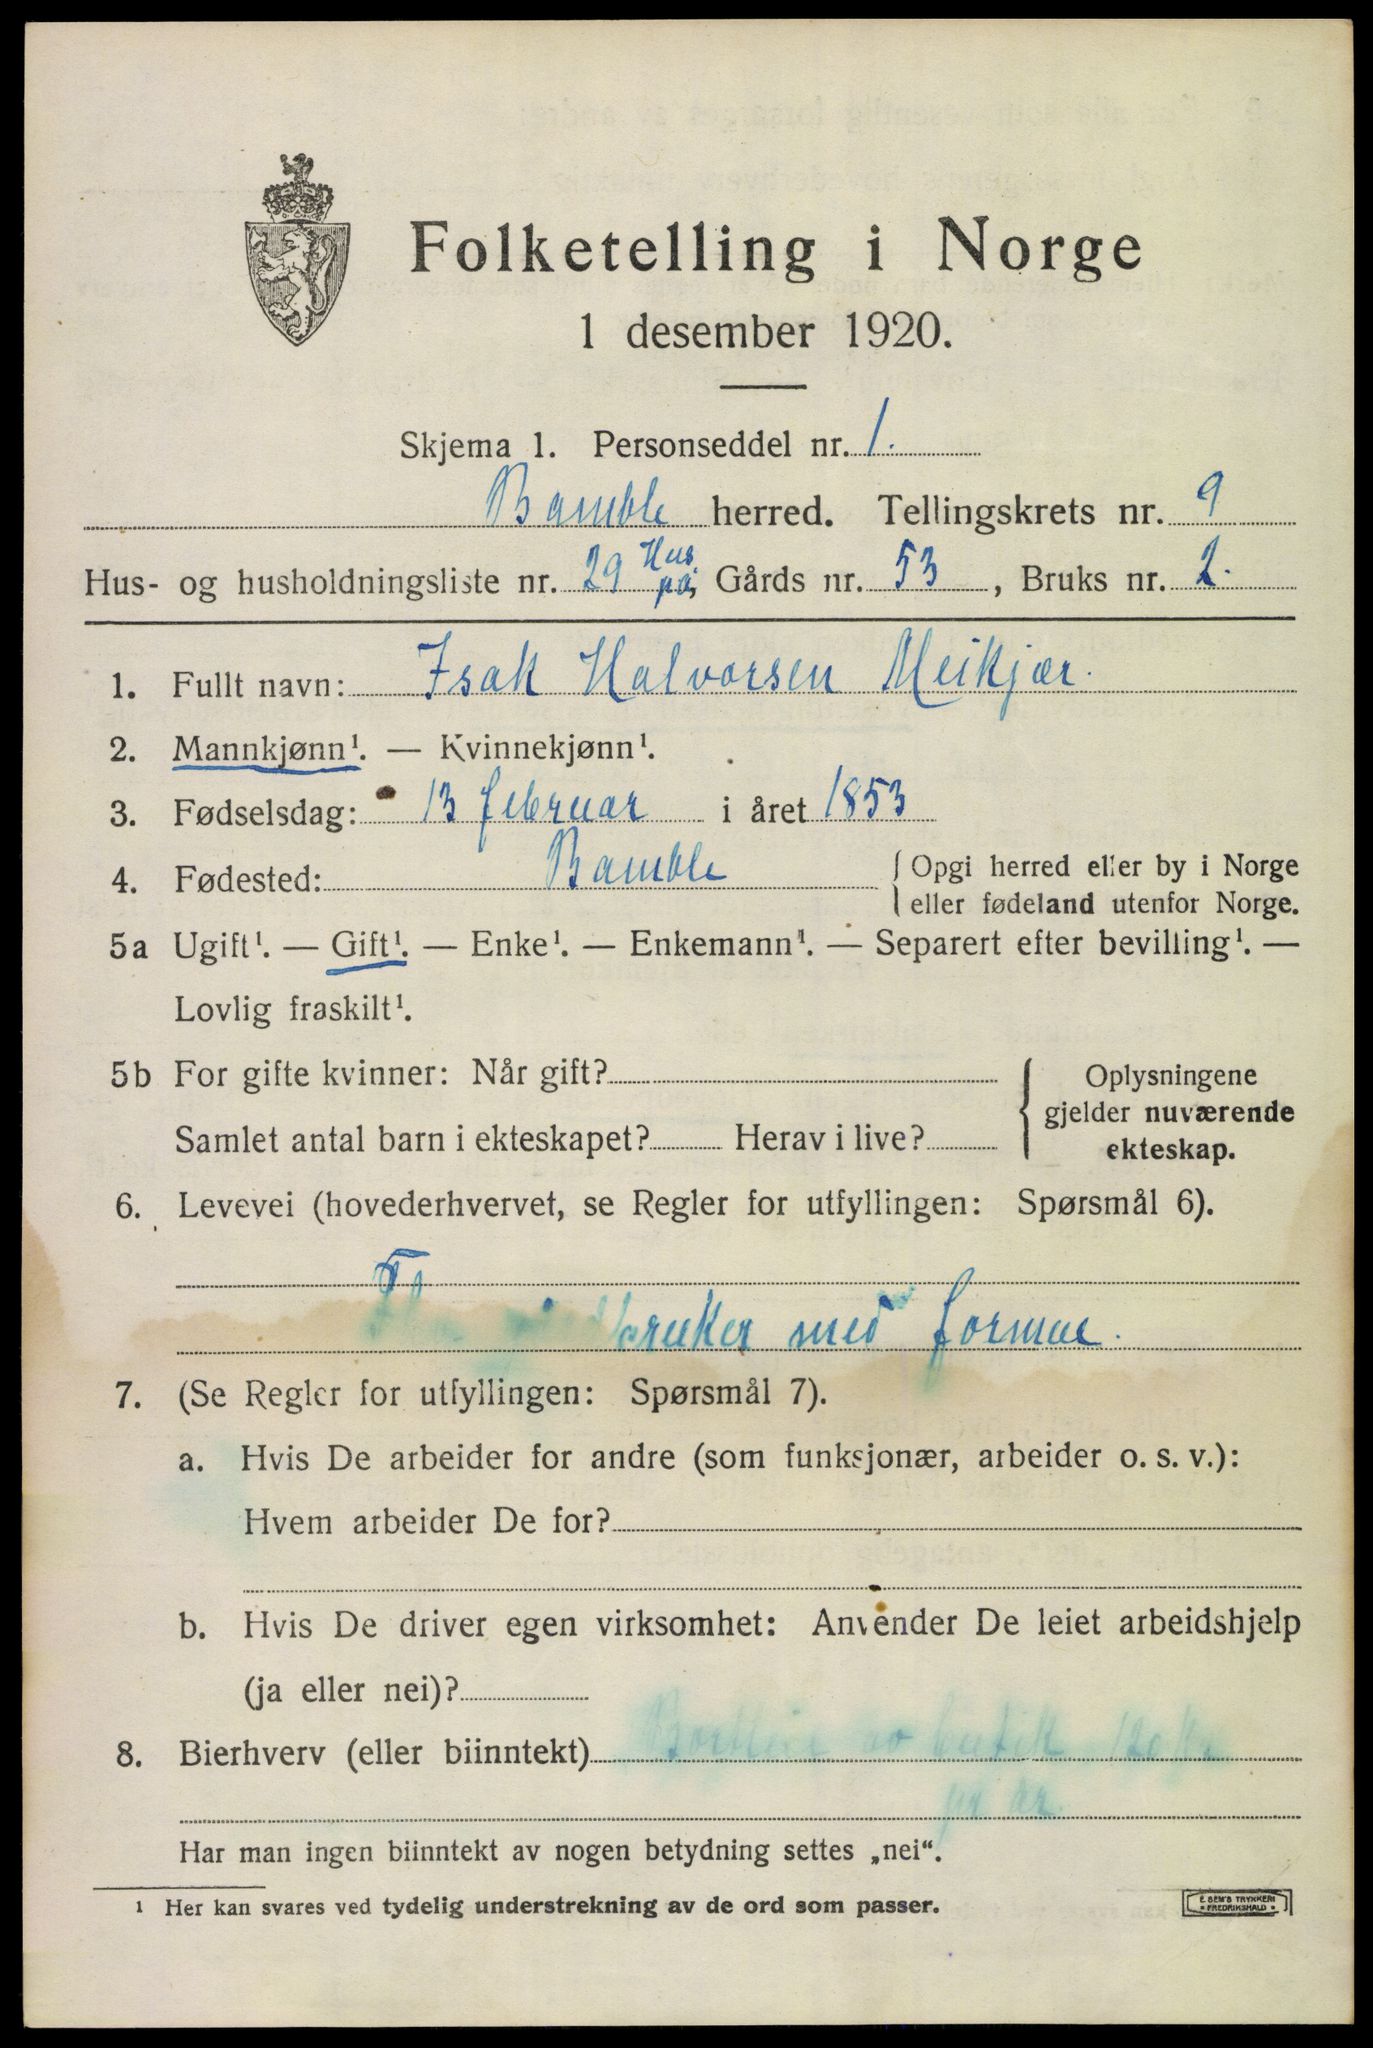 Folketelling i Norge
1 desember 1920.
Skjema 1. Personseddel nr. 1.
Bamble herred. Tellingskrets nr. 9
Hus- og husholdningsliste nr. 29 Hus på, Gårds nr. 53, Bruks nr. 2.
1. Fullt navn: Isak Halvorsen Meikjær.
2. Mannkjønn¹. — Kvinnekjønn¹.
3. Fødselsdag: 13 februar i året 1853
4. Fødested: Bamble { Opgi herred eller by i Norge
eller fødeland utenfor Norge.
5a Ugift¹. — Gift¹. — Enke¹. — Enkemann¹. — Separert efter bevilling¹. —
Lovlig fraskilt¹.
5b For gifte kvinner: Når gift? { Oplysningene
gjelder nuværende
Samlet antal barn i ekteskapet? Herav i live?
ekteskap.
6. Levevei (hovederhvervet, se Regler for utfyllingen: Spørsmål 6).
bruker med formue.
7. (Se Regler for utfyllingen: Spørsmål 7).
a. Hvis De arbeider for andre (som funksjonær, arbeider o. s. v.):
Hvem arbeider De for?
b. Hvis De driver egen virksomhet: Anvender De leiet arbeidshjelp
(ja eller nei)?
8. Bierhverv (eller biinntekt) av butik
pr år
Har man ingen biinntekt av nogen betydning settes „nei“.
¹ Her kan svares ved tydelig understrekning av de ord som passer.
E. SEM'S TRYKKERI
FREDRIKSHALD